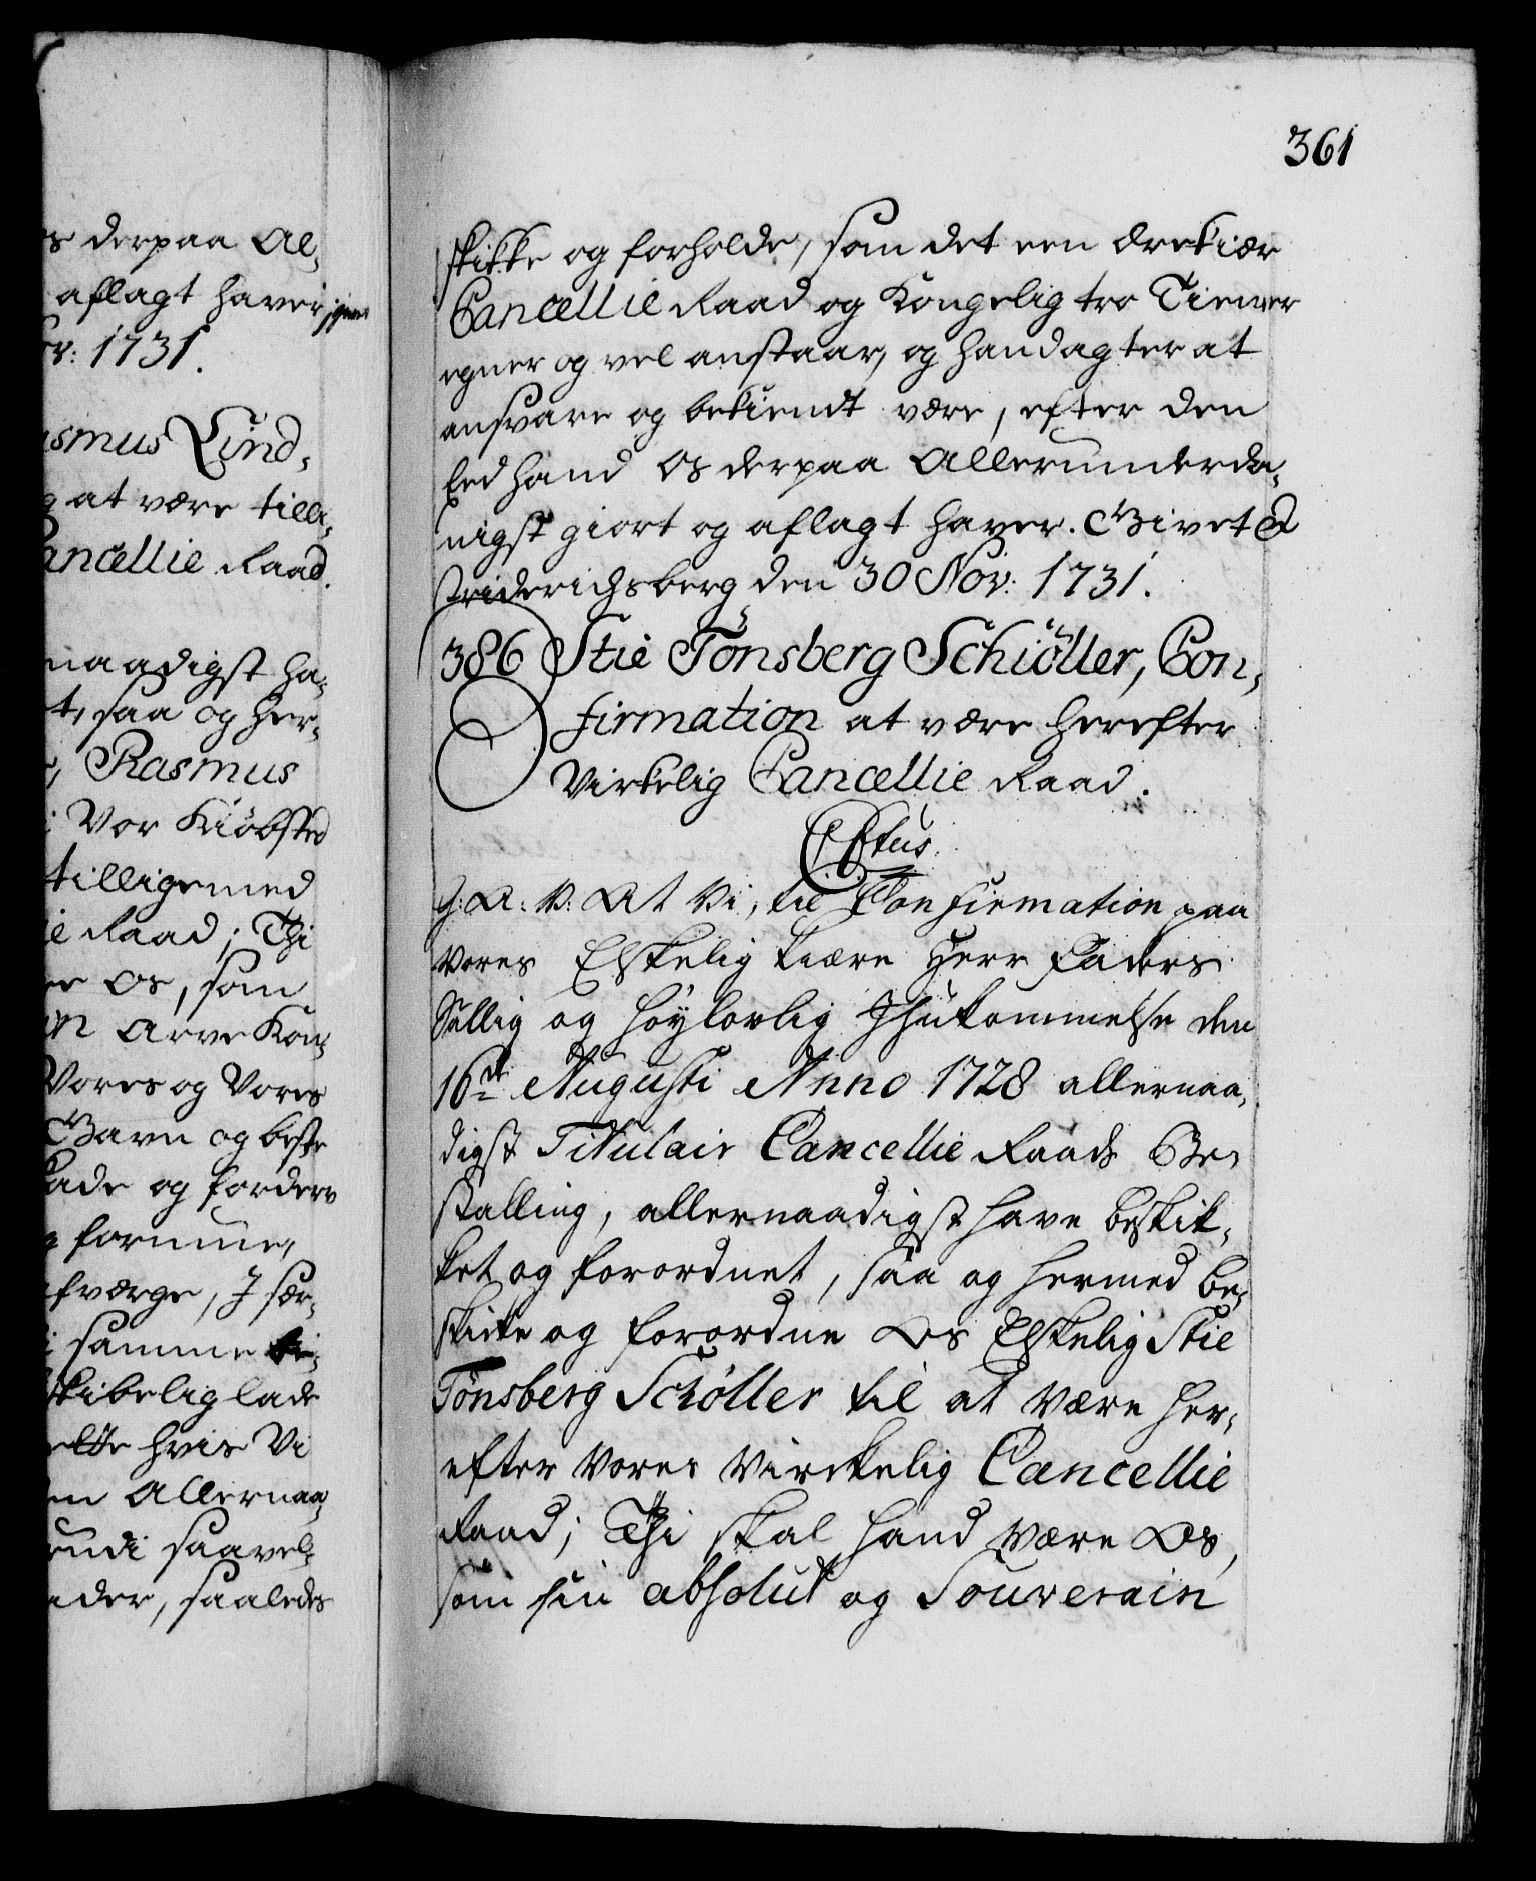 361
s derpaa Al-
aflagt haver
1731.
smus Lind-
g at være till-
ancellie Raad.
naadigst ha-
t, saa og her-
Rasmus
i Vor Kiøbsted
tilligemed
ie Raad; Thi
er os, som
en Arve Kon-
Vores og Vores
Gavn og beste
kade og fordærv
formue,
fværge, I sær-
i samme
skibelig lade
elte hvis Vi
en Allernaa-
endi saavel-
eder, saaledes
skikke og forholde, som det een ærekiær
Cancellie Raad og Kongelig tro Tienner
egner og vel anstaar, og hand agter at
ansvare og bekiendt være, efter den
Eed hand Os derpaa Allerunderda-
nigst giort og aflagt haver. Givet &
Friderichsberg den 30 Nov: 1731.
386 Stie Tönsberg Schiöller, Con-
firmation at være herefter
Virkelig Cancellie Raad.
C Sextus.
G: A: V: At Vi, til Confirmation paa
Vores Elskelig kiære Herr Faders
Sallig og høylovlig Ihukommelse den
16de Augusti Anno 1728 allernaa-
digst Titulair Cancellie Raads Be-
stalling, allernaadigst have beskik-
ket og forordnet, saa og hermed be-
skicke og forordne Os Elskelig Stie
Tönsberg Schöller til at være her-
efter Vores Virckelig Cancellie
Raad; Thi skal hand være Os,
som sin absolut og Souverain